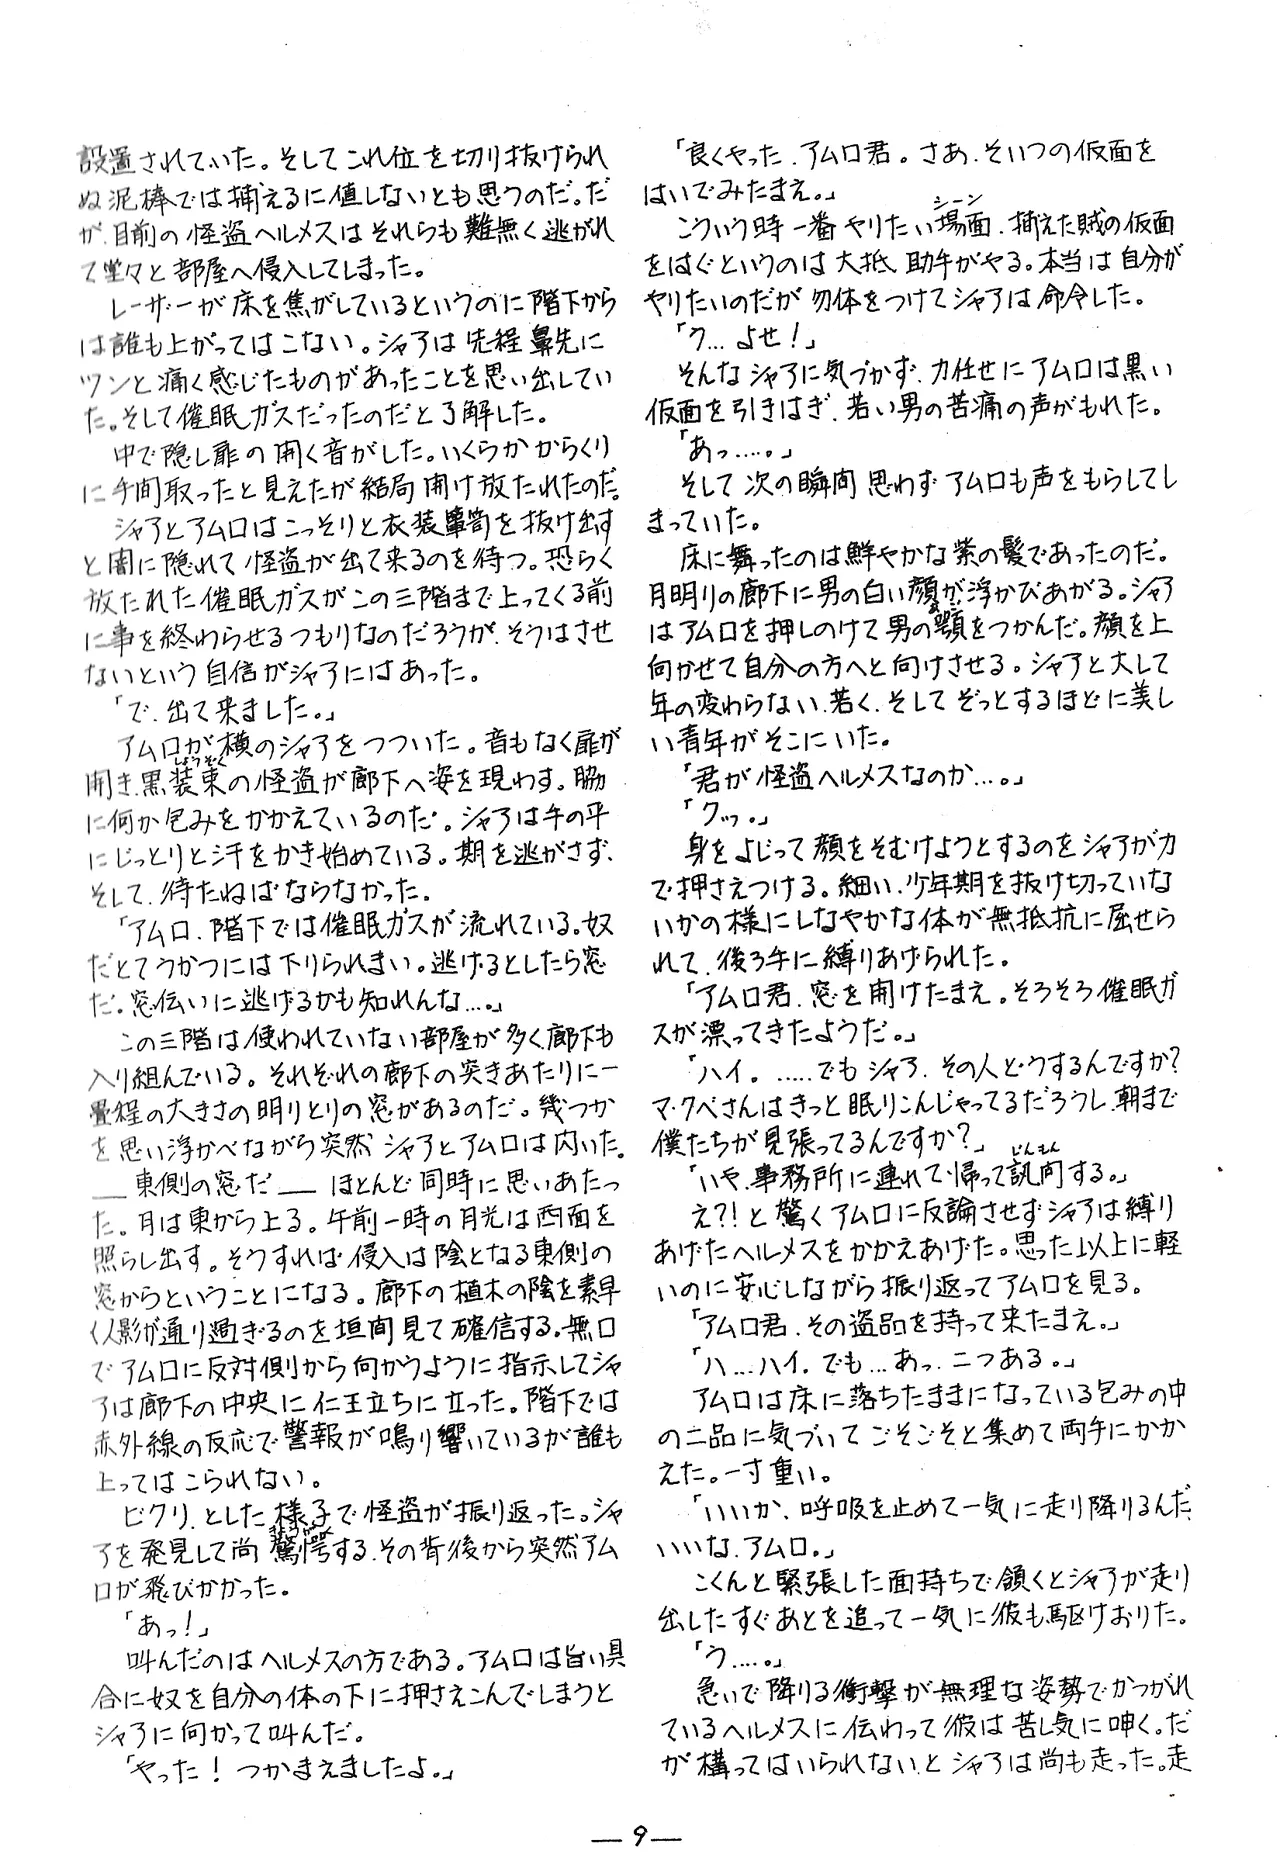 設置されていた。そしてこれ位を切り抜けられ
ぬ泥棒では捕えるに値しないとも思うのだ。だ
が、目前の怪盗ヘルメスはそれらも難無く逃がれ
て堂々と部屋へ侵入してしまった。
レーザーが床を焦がしているというのに階下から
は誰も上がってはこない。シャアは先程鼻先に
ツンと痛く感じたものがあったことを思い出してい
た。そして催眠ガスだったのだと了解した。
中で隠し扉の開く音がした。いくらかからくり
に手間取ったと見えたが結局開け放たれたのだ。
シャアとアムロはこっそりと衣装箪笥を抜け出す
と闇に隠れて怪盗が出て来るのを待つ。恐らく
放たれた催眠ガスがこの三階まで上ってくる前
に事を終わらせるつもりなのだろうが、そうはさせ
ないという自信がシャアにはあった。
「で、出て来ました。」
アムロが横のシャアをつついた。音もなく扉が
開き、黒装束の怪盗が廊下へ姿を現わす。脇
しょうぞく
に何か包みをかかえているのだ。シャアは手の平
にじっとりと汗をかき始めている。期を逃がさず、
そして、待たねばならなかった。
「アムロ、階下では催眠ガスが流れている。奴
だとてうかつには下りられまい。逃げるとしたら窓
だ。窓伝いに逃げるかも知れんな…。」
この三階は、使われていない部屋が多く、廊下も
入り組んでいる。それぞれの廊下の突きあたりに一
畳程の大きさの明りとりの窓があるのだ。幾つか
を思い浮かべながら突然シャアとアムロは閃いた。
――東側の窓だ――ほとんど同時に思いあたっ
た。月は東から上る。午前一時の月光は西面を
照らし出す。そうすれば侵入は陰となる東側の
窓からということになる。廊下の植木の陰を素早
く人影が通り過ぎるのを垣間見て確信する。無口
でアムロに反対側から向かうように指示してシャ
アは廊下の中央に仁王立ちに立った。階下では
赤外線の反応で警報が鳴り響いているが誰も
上ってはこられない。
ビクリ、とした様子で怪盗が振り返った。シャ
アを発見して尚驚愕する、その背後から突然アム
きょうがく
ロが飛びかかった。
「あっ!」
叫んだのはヘルメスの方である。アムロは旨い具
合に奴を自分の体の下に押さえこんでしまうと
シャアに向かって叫んだ。
「やった! つかまえましたよ。」
「良くやった、アムロ君。さあ、そいつの仮面を
はいでみたまえ。」
こういう時一番やりたい場面、捕えた賊の仮面
シーン
をはぐというのは大抵、助手がやる。本当は自分が
やりたいのだが勿体をつけてシャアは命令した。
「ク…よせ!」
そんなシャアに気づかず、力任せにアムロは黒い
仮面を引きはぎ、若い男の苦痛の声がもれた。
「あっ……。」
そして次の瞬間思わずアムロも声をもらしてし
まっていた。
床に舞ったのは鮮やかな紫の髪であったのだ。
月明りの廊下に男の白い顔が浮かびあがる。シャア
はアムロを押しのけて男の顎をつかんだ。顔を上
あご
向かせて自分の方へと向けさせる。シャアと大して
年の変わらない、若く、そしてぞっとするほどに美し
い青年がそこにいた。
「君が怪盗ヘルメスなのか…。」
「クッ。」
身をよじって顔をそむけようとするのをシャアが力
で押さえつける。細い、少年期を抜け切っていな
いかの様にしなやかな体が無抵抗に屈せら
れて、後ろ手に縛りあげられた。
「アムロ君、窓を開けたまえ。そろそろ催眠ガ
スが漂ってきたようだ。」
「ハイ。……でもシャア、その人どうするんですか?
マ・クベさんはきっと眠りこんじゃってるだろうし、朝まで
僕たちが見張ってるんですか?」
「いや、事務所に連れて帰って訊問する。」
じんもん
え?!と驚くアムロに反論させずシャアは縛り
あげたヘルメスをかかえあげた。思った以上に軽
いのに安心しながら振り返ってアムロを見る。
「アムロ君、その盗品を持って来たまえ。」
「ハ…ハイ。でも…あっ、二つある。」
アムロは床に落ちたままになっている包みの中
の二品に気づいてごそごそと集めて両手にかか
えた。一寸重い。
「いいか、呼吸を止めて一気に走り降りるんだ、
いいな、アムロ。」
こくんと緊張した面持ちで頷くとシャアが走り
出したすぐあとを追って一気に彼も駆けおりた。
「う……。」
急いで降りる衝撃が無理な姿勢でかつがれ
ているヘルメスに伝わって彼は苦し気に呻く。だ
が構ってはいられない、とシャアは尚も走った。走
―9―